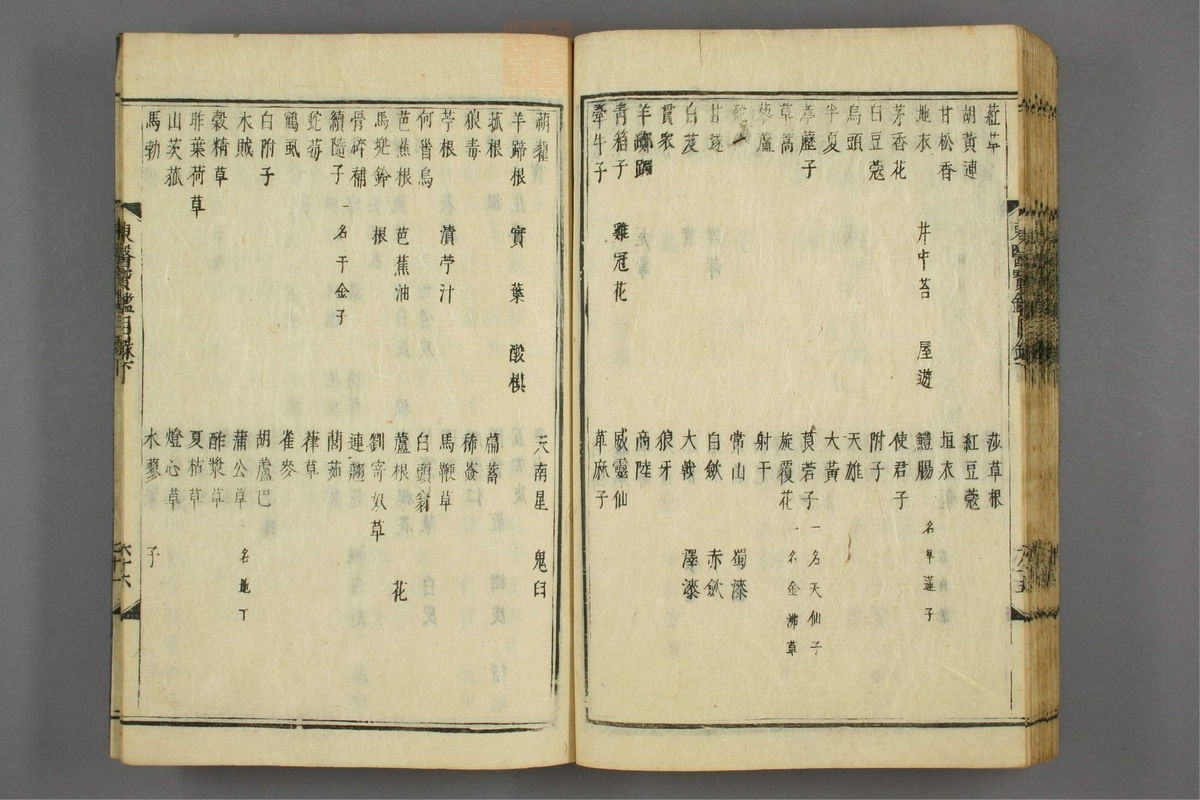 葒草 莎草根
胡黃連 紅豆蔻
甘松香 垣衣
地衣 井中苔 屋遊 鱧腸 名旱蓮子
茅香花 使君子
白豆蔻 附子
烏頭 天雄
半夏 大黃
葶藶子 莨菪子 一名天仙子
草蒿 旋覆花 一名金沸草
藜蘆 射干
常山 蜀漆
甘遂 白歛 赤歛
白芨 大戟 澤漆
貫衆 狼牙
羊躑躅 商陸
青葙子 雞冠花 威靈仙
牽牛子 萆麻子
蒴藋 天南星 鬼臼
羊蹄根 實 葉 酸模
菰根 萹蓄
狼毒 豨薟
苧根 漬苧汁 馬鞭草
何首烏 白頭翁
芭蕉根 芭蕉油 蘆根 花
馬兠鈴 根 劉寄奴草
骨碎補 連翹
續隨子 一名千金子 䕡茹
蛇莓 葎草
鶴虱 雀麥
白附子 胡蘆巴
木賊 蒲公草 一名地丁
穀精草 酢漿草
葉荷草 夏枯草
山茨菰 燈心草
馬勃 水蓼 子
東醫寶鑑目錄下 六十六